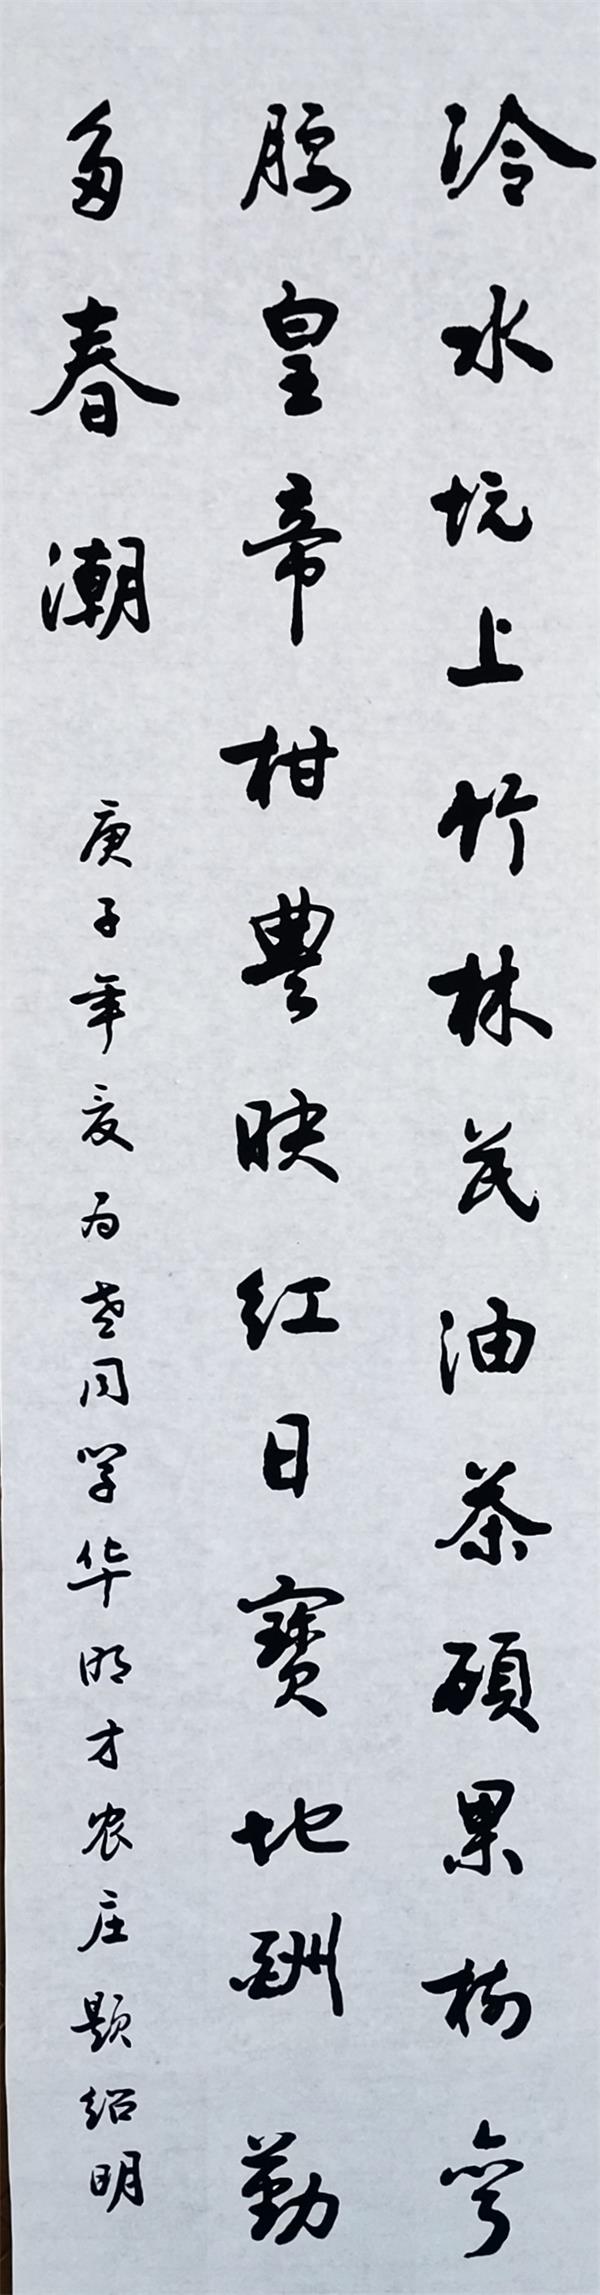 冷水坑上竹林茂油茶碩果树弯
腰皇帝柑豐映红日寳地酬勤
多春潮
庚子年夏为老同学华明才农庄题绍明